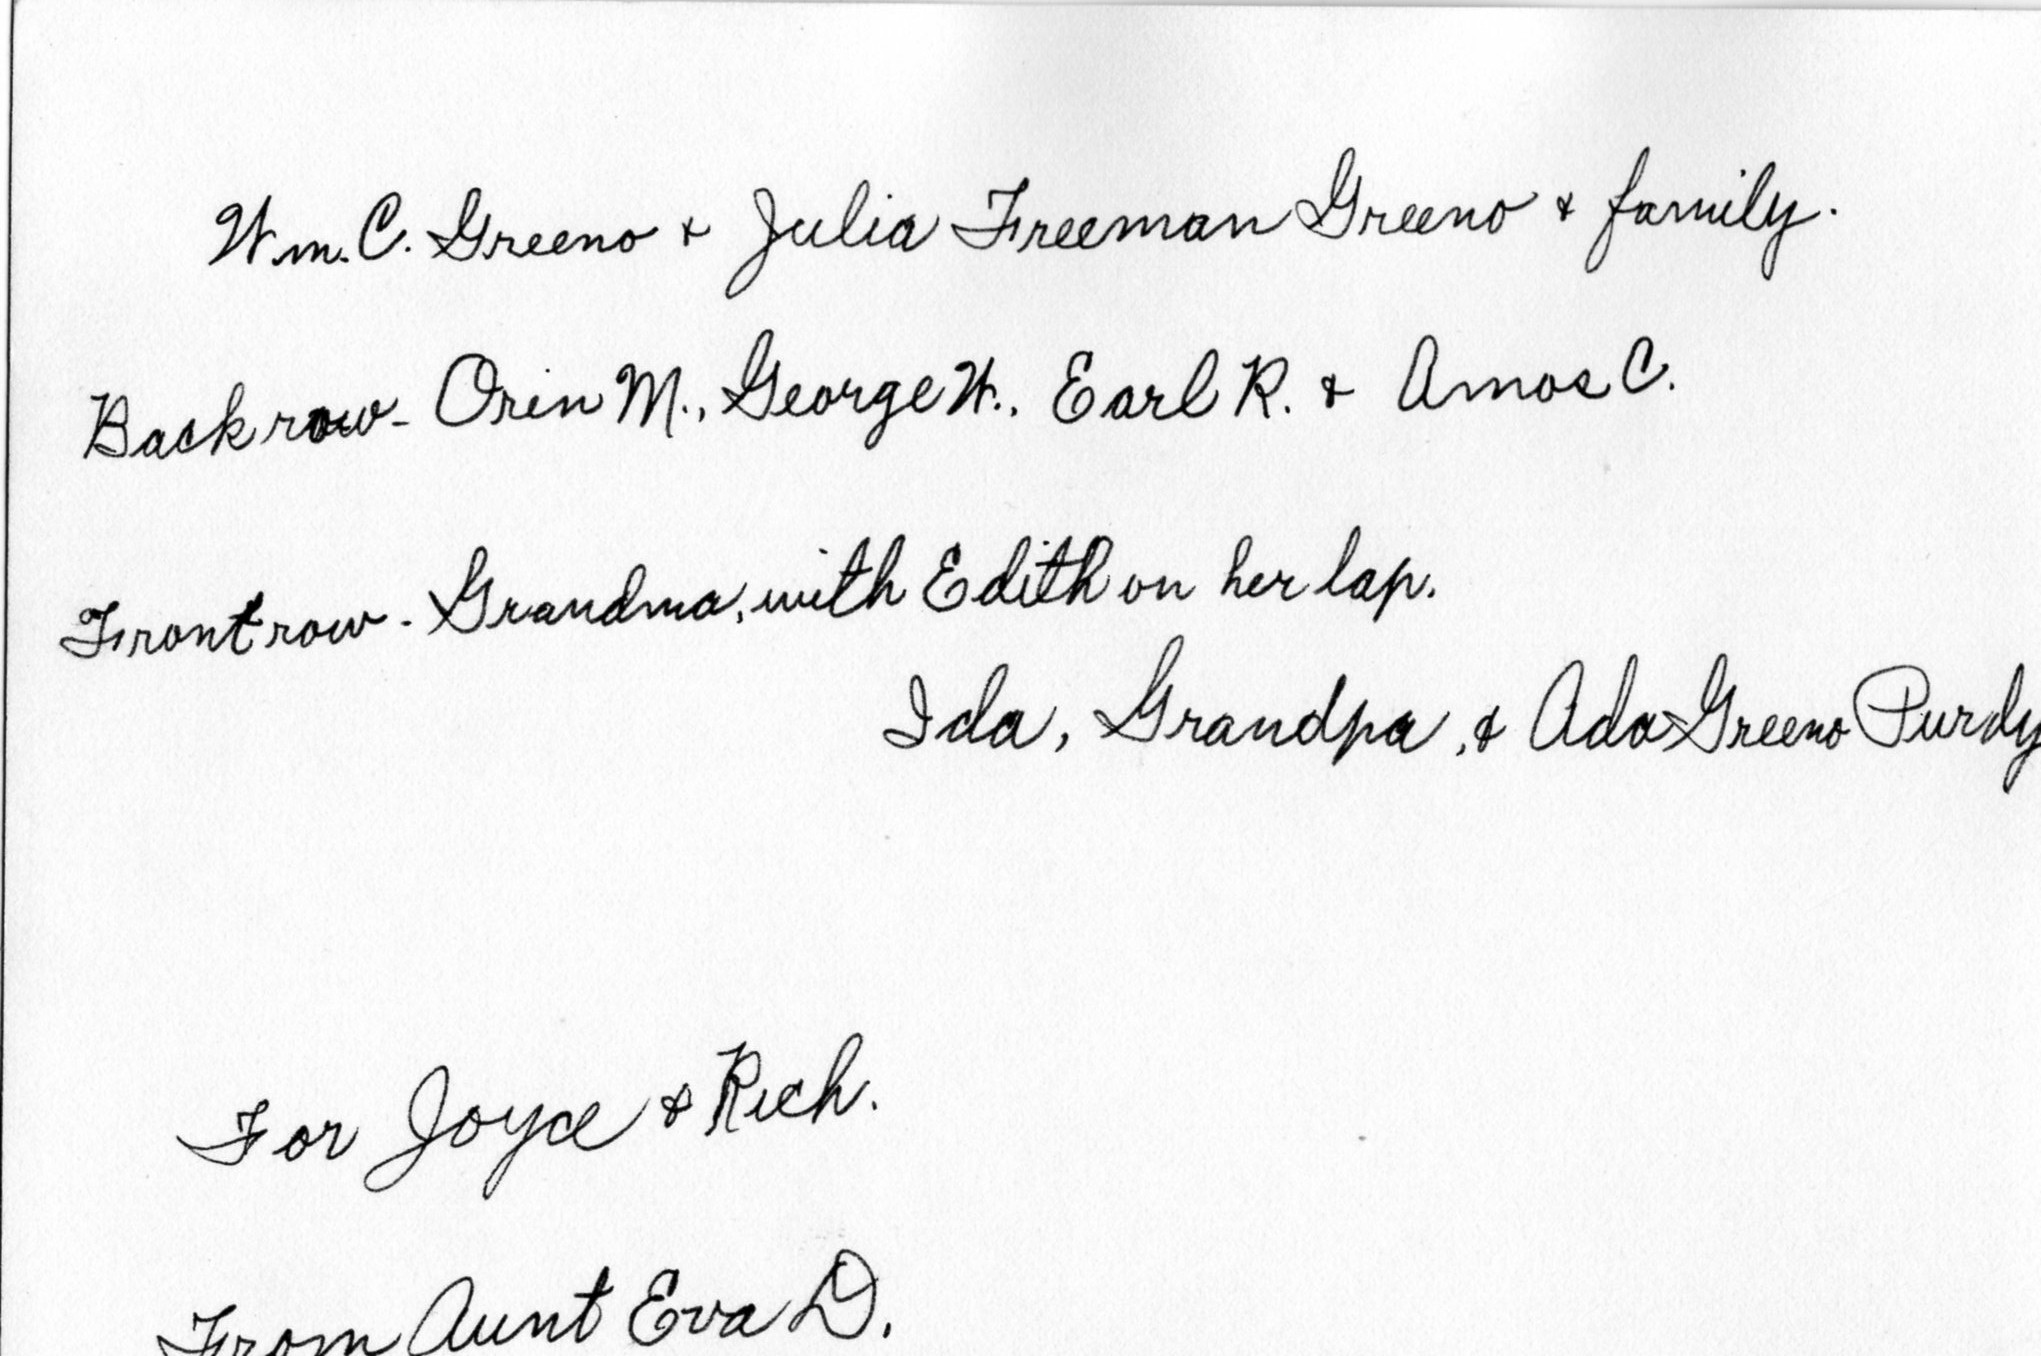 Wm. C. Greeno & Julia Freeman Greeno & family.
Back row - Orin M., George W., Earl R. & Amos C.
Front row - Grandma, with Edith on her lap.
Ida, Grandpa, & Ada Greeno Purdy
For Joyce & Rich.
From Aunt Eva D.